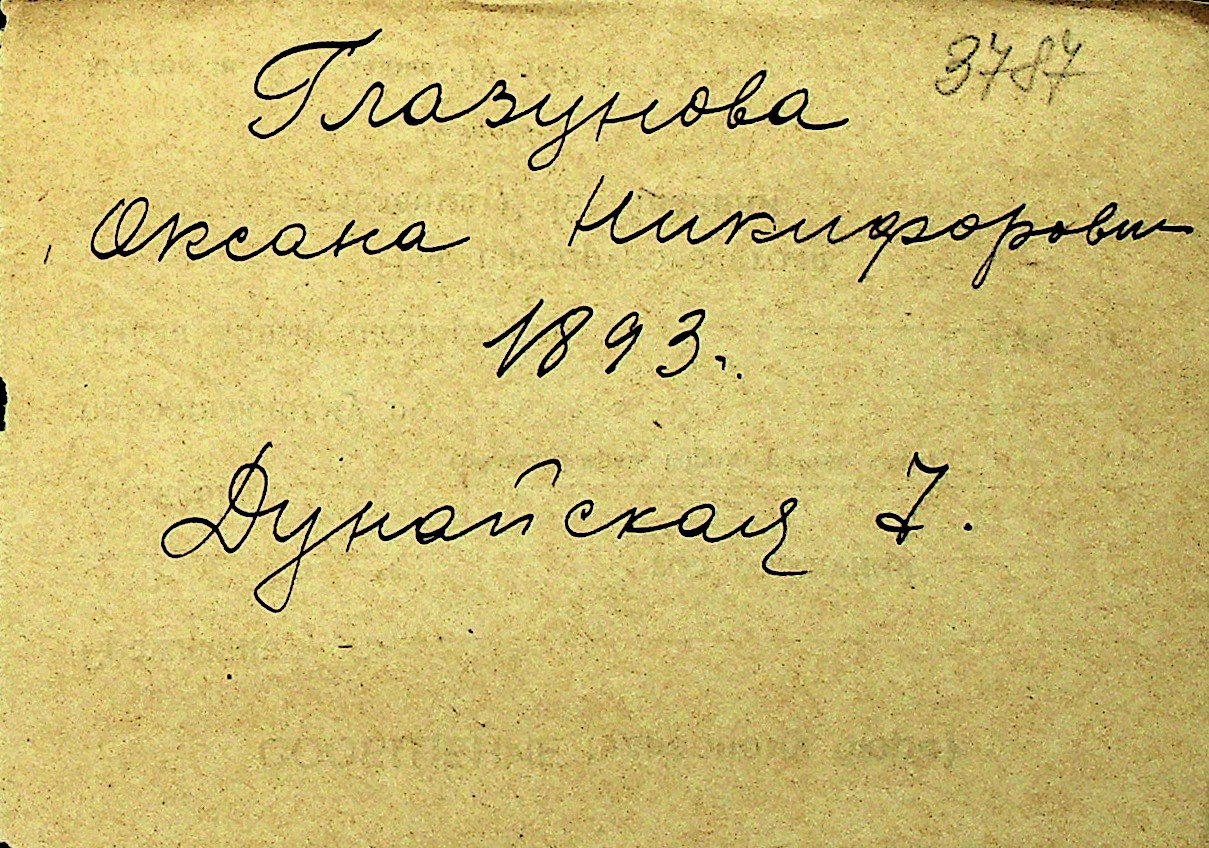 3787
Глазунова
Оксана Никифоровн
1893г.
Дунайская 7.